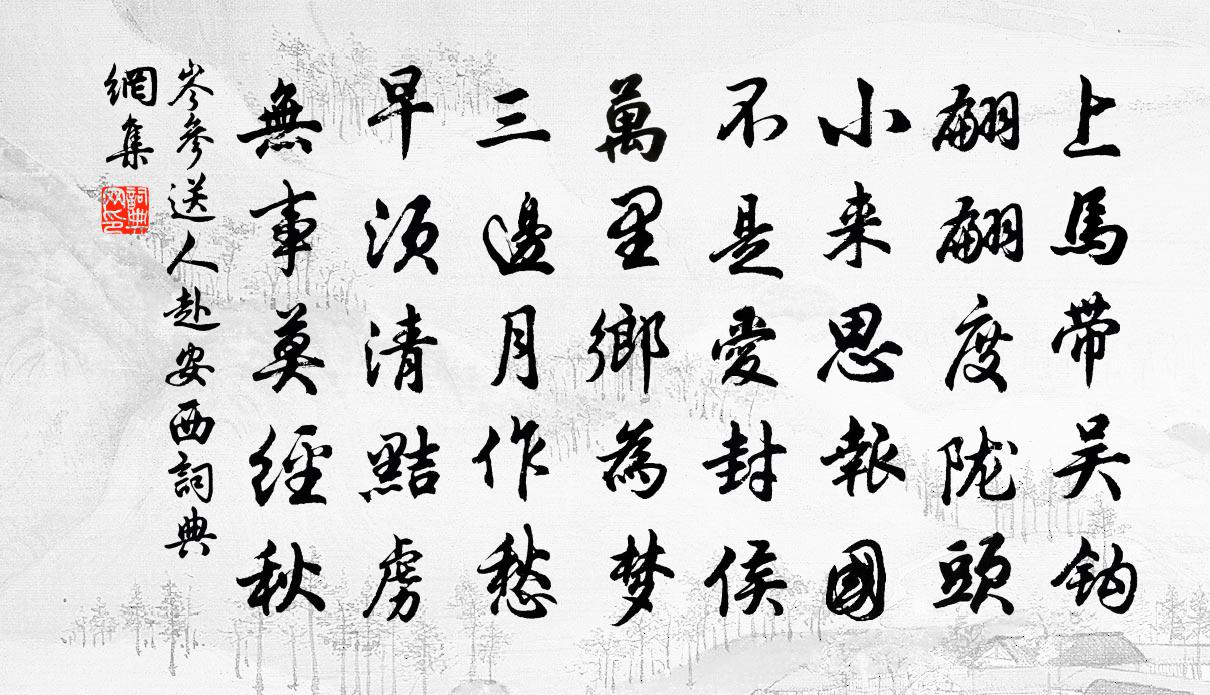 上馬带吴鈎
翩翩度陇頭
小来思報國
不是愛封侯
萬里鄉為梦
三邊月作愁
早須清黠虜
無事莫經秋
岑參送人赴安西詞典
網集
詞典網印